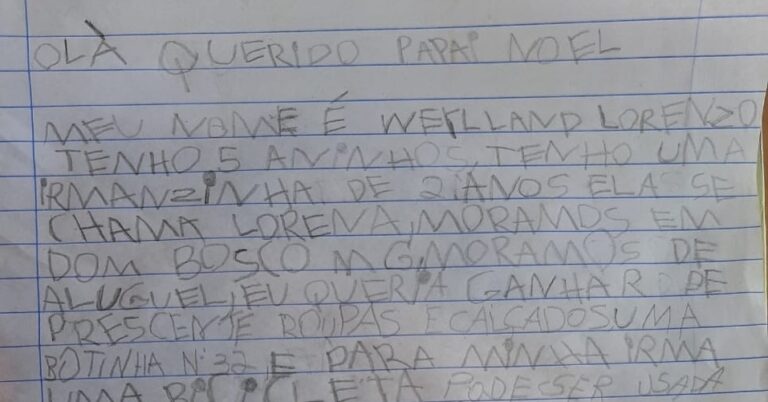 OLÀ QUERIDO PAPAI NOEL
MEU NOME É WEILLAND LORENZO
TENHO 5 ANINHOS, TENHO UMA
IRMANZINHA DE 2 ANOS ELA SE
CHAMA LORENA, MORAMOS EM
DOM BOSCO MG, MORAMOS DE
ALUGUEL, EU QUERIA GANHAR DE
PRESCENTE ROUPAS E CALÇADOS UMA
BOTINHA N: 32, E PARA MINHA IRMA
UMA BICICLETA PODE SER USADA